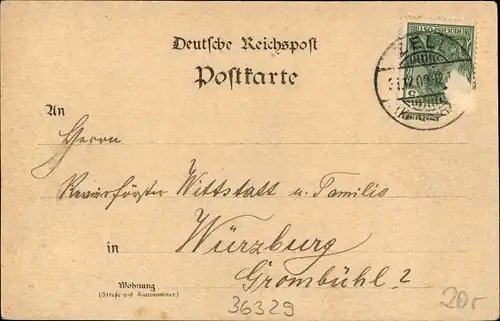 Deutsche Reichspost
Postkarte
ZELL
An
Herrn
Revierförster Wittstatt u. Familie
in Würzburg
Grombühl 2
Wohnung
(Straße und Hausnummer)
36329
20r